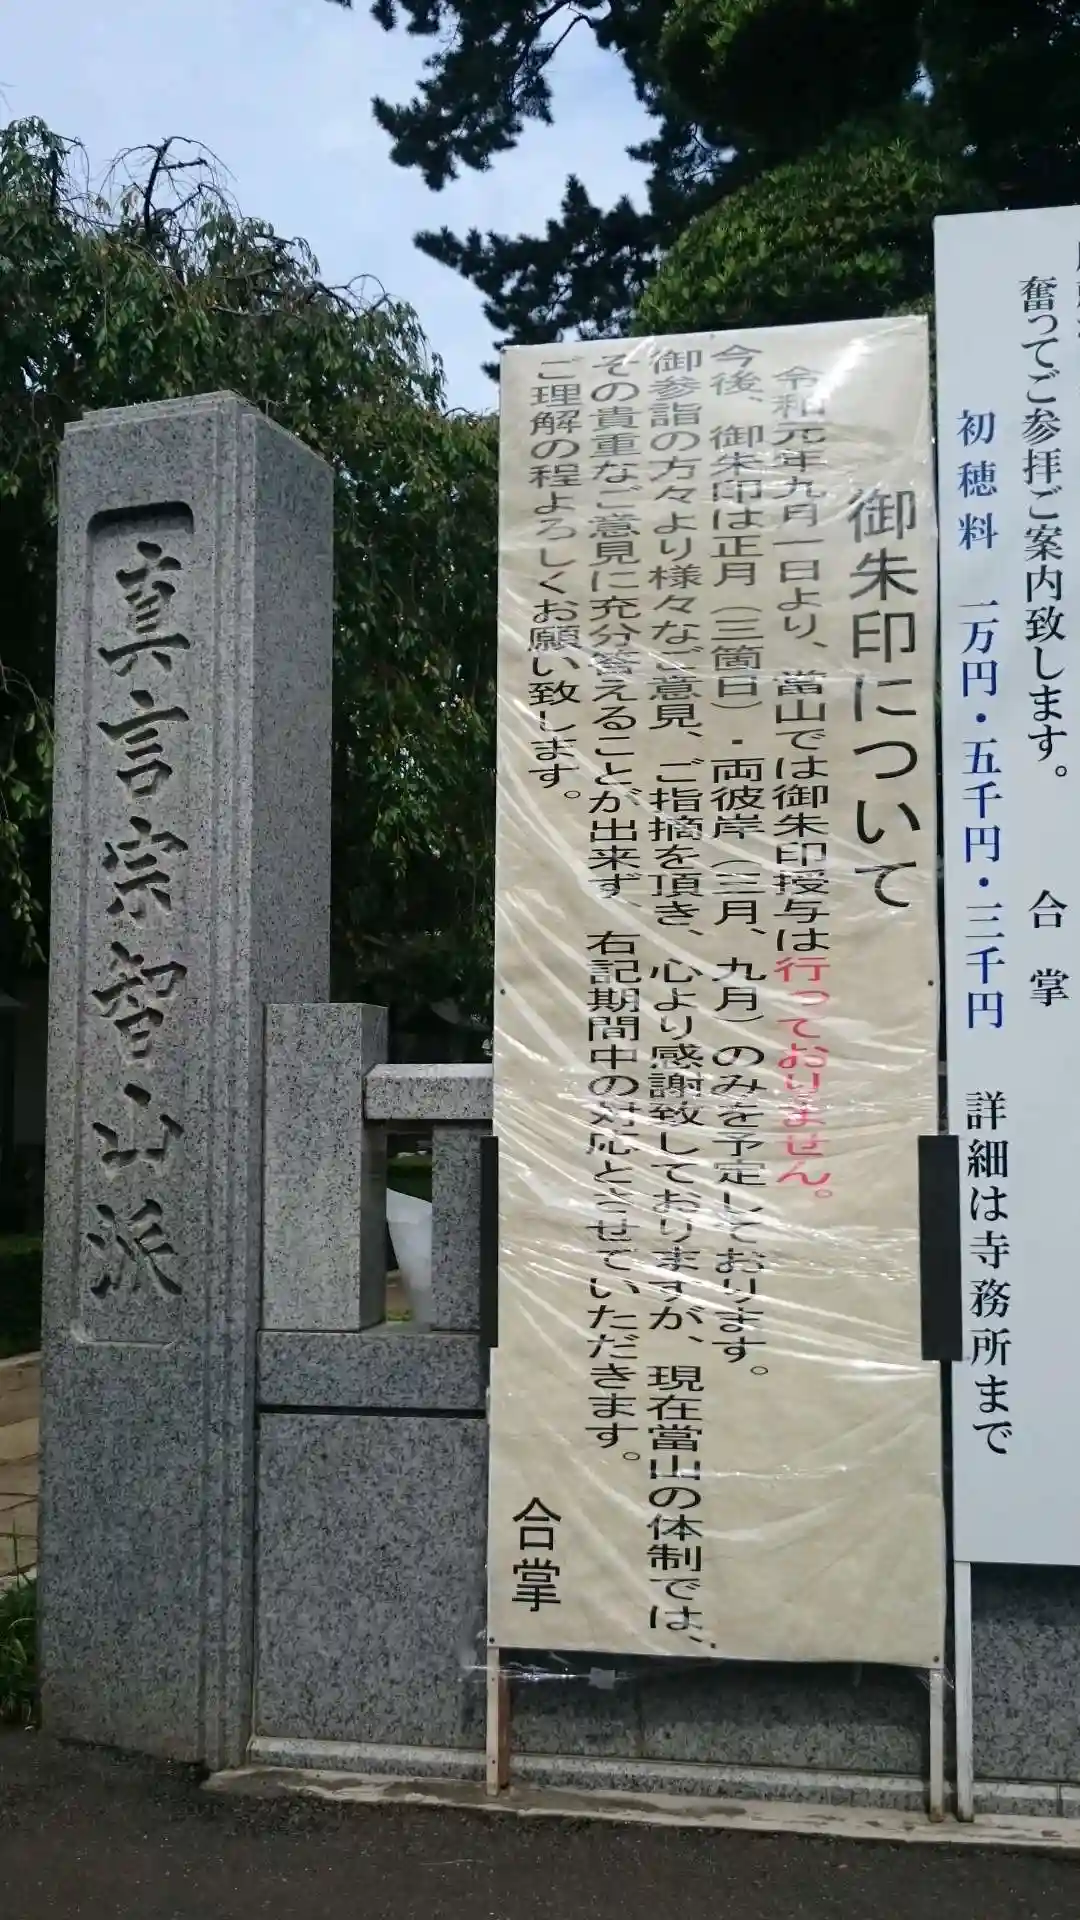 奮ってご参拝ご案内致します。　合　掌
初穂料　一万円・五千円・三千円　詳細は寺務所まで
御朱印について
令和元年九月一日より、當山では御朱印授与は行っておりません。
今後、御朱印は正月（三箇日）・両彼岸（三月、九月）のみを予定しております。
御参詣の方々より様々なご意見、ご指摘を頂き、心より感謝致しておりますが、現在當山の体制では、
その貴重なご意見に充分答えることが出来ず、右記期間中の対応とさせていただきます。
ご理解の程よろしくお願い致します。
合掌
真言宗智山派